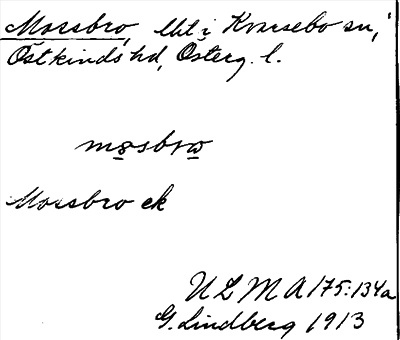 Mossbro, lht i Kvarsebo sn,
Östkinds hd, Österg. l.
mosbro
Mossbro ek
ULMA 175:134a
G. Lindberg 1913